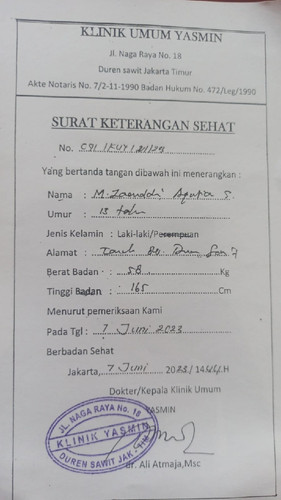 KLINIK UMUM YASMIN
Jl. Naga Raya No. 18
Duren sawit Jakarta Timur
Akte Notaris No. 7/2-11-1990 Badan Hukum No. 472/Leg/1990
SURAT KETERANGAN SEHAT
No.
Yang bertanda tangan dibawah ini menerangkan :
Nama : M. S.
Umur : 15 tahun
Jenis Kelamin : Laki-laki/Perempuan
Alamat :
Berat Badan : 58 Kg
Tinggi Badan : 165 Cm
Menurut pemeriksaan Kami
Pada Tgl : 7 Juni 2023
Berbadan Sehat
Jakarta, 7 Juni 2023/1444.H
Dokter/Kepala Klinik Umum
YASMIN
JL. NAGA RAYA No. 18
KLINIK YASMIN
DUREN SAWIT JAK - TIM
dr. Ali Atmaja,Msc